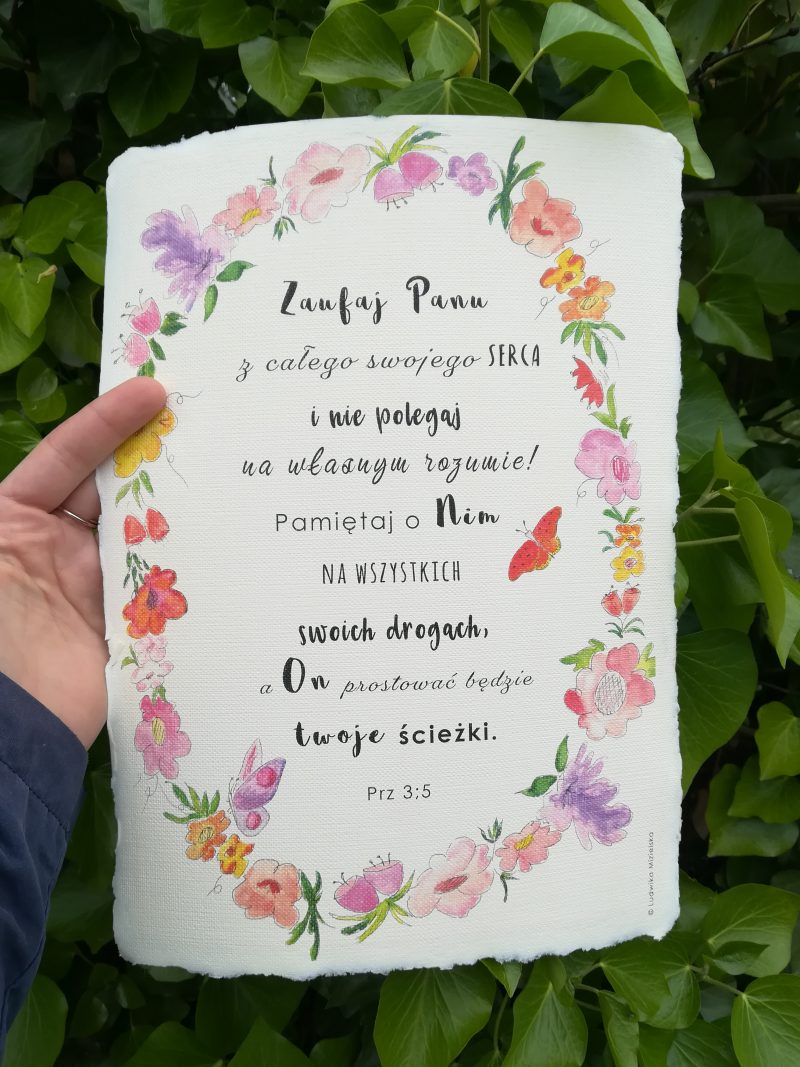 Zaufaj Panu
z całego swojego SERCA
i nie polegaj
na własnym rozumie!
Pamiętaj o Nim
NA WSZYSTKICH
swoich drogach,
a On prostować będzie
twoje ścieżki.
Prz 3;5
© Ludwika Mizielska